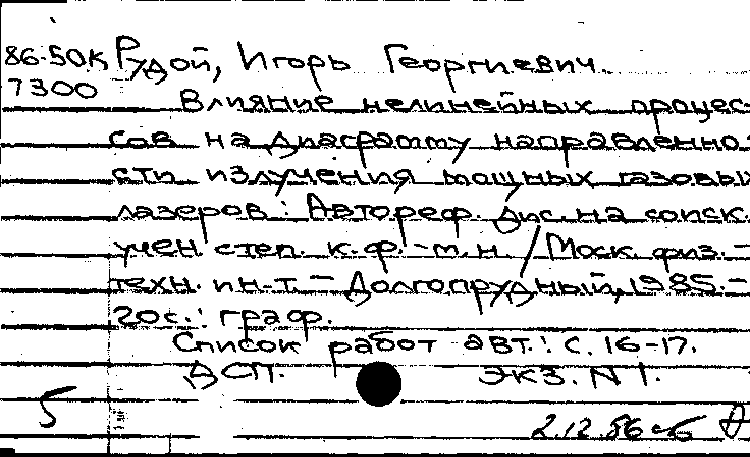 86-50К Рудой, Игорь Георгиевич.
7300
Влияние нелинейных процес-
сов на диаграмму направленно-
сти излучения мощных газовых
лазеров: Автореф. дис. на соиск.
учен. степ. к.ф.-м.н. / Моск. физ.-
техн. ин-т. - Долгопрудный, 1985. -
20с.: граф.
Список работ авт.: с. 16-17.
ДСП. ЭКЗ. N 1.
5
2.12.86